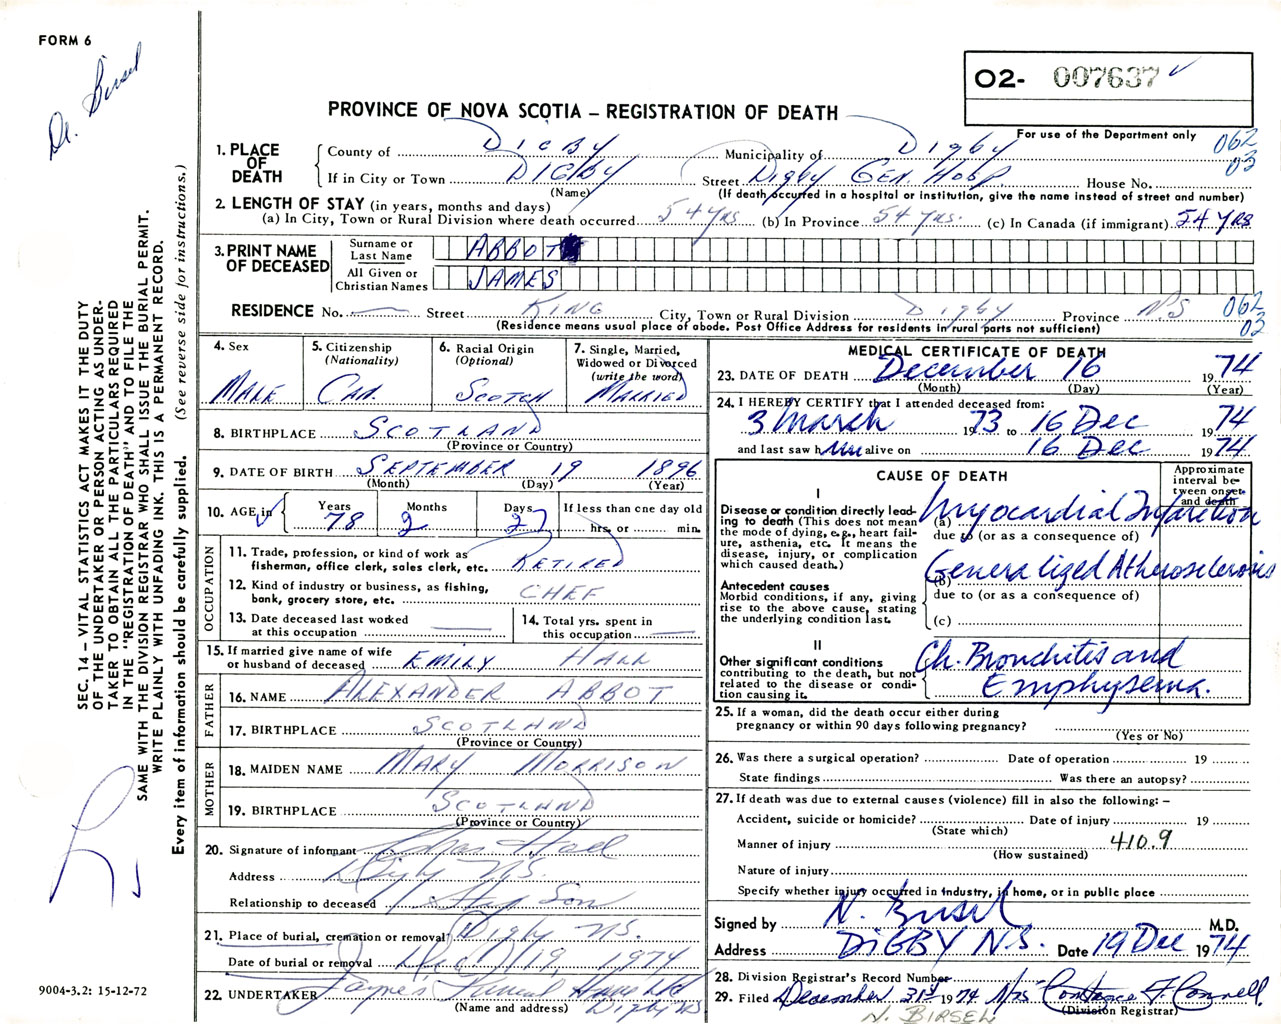 FORM 6
Dr. Birsel
O2- 007637
PROVINCE OF NOVA SCOTIA – REGISTRATION OF DEATH
For use of the Department only
062
03
1. PLACE OF DEATH
County of DIGBY Municipality of Digby
If in City or Town DIGBY Street Digby Gen. Hosp House No.
(Name) (If death occurred in a hospital or institution, give the name instead of street and number)
2. LENGTH OF STAY (in years, months and days)
(a) In City, Town or Rural Division where death occurred 54 yrs (b) In Province 54 yrs. (c) In Canada (if immigrant) 54 YRS
3. PRINT NAME OF DECEASED
Surname or Last Name ABBOT
All Given or Christian Names JAMES
RESIDENCE No. — Street KING City, Town or Rural Division Digby Province N.S
(Residence means usual place of abode. Post Office Address for residents in rural parts not sufficient)
062
02
4. Sex
MALE
5. Citizenship (Nationality)
CAN.
6. Racial Origin (Optional)
SCOTCH
7. Single, Married, Widowed or Divorced (write the word)
MARRIED
8. BIRTHPLACE SCOTLAND
(Province or Country)
9. DATE OF BIRTH SEPTEMBER 19 1896
(Month) (Day) (Year)
10. AGE in
Years 78
Months 2
Days 27
If less than one day old
hrs. or min.
OCCUPATION
11. Trade, profession, or kind of work as fisherman, office clerk, sales clerk, etc. RETIRED
12. Kind of industry or business, as fishing, bank, grocery store, etc. CHEF
13. Date deceased last worked at this occupation —
14. Total yrs. spent in this occupation —
15. If married give name of wife or husband of deceased EMILY HALL
FATHER
16. NAME ALEXANDER ABBOT
17. BIRTHPLACE SCOTLAND
(Province or Country)
MOTHER
18. MAIDEN NAME MARY MORRISON
19. BIRTHPLACE SCOTLAND
(Province or Country)
20. Signature of informant Hall
Address Digby N.S.
Relationship to deceased Step Son
21. Place of burial, cremation or removal Digby N.S.
Date of burial or removal Dec 19, 1974
22. UNDERTAKER Jayne's Funeral Home Ltd
(Name and address) Digby NS
MEDICAL CERTIFICATE OF DEATH
23. DATE OF DEATH December 16 1974
(Month) (Day) (Year)
24. I HEREBY CERTIFY that I attended deceased from:
3 March 1973 to 16 Dec 1974
and last saw him alive on 16 Dec 1974
CAUSE OF DEATH
Approximate interval between onset and death
I
Disease or condition directly leading to death (This does not mean the mode of dying, e.g., heart failure, asthenia, etc. It means the disease, injury, or complication which caused death.)
(a) Myocardial Infarction
due to (or as a consequence of)
Antecedent causes
Morbid conditions, if any, giving rise to the above cause, stating the underlying condition last.
(b) Generalized Atherosclerosis
due to (or as a consequence of)
(c)
II
Other significant conditions contributing to the death, but not related to the disease or condition causing it.
Ch. Bronchitis and
Emphysema.
25. If a woman, did the death occur either during pregnancy or within 90 days following pregnancy?
(Yes or No)
26. Was there a surgical operation? Date of operation 19
State findings Was there an autopsy?
27. If death was due to external causes (violence) fill in also the following: –
Accident, suicide or homicide? Date of injury 19
(State which)
Manner of injury 410.9
(How sustained)
Nature of injury
Specify whether injury occurred in industry, in home, or in public place
Signed by N. Birsel M.D.
Address DIGBY N.S. Date 19 Dec 1974
28. Division Registrar's Record Number
29. Filed December 31st 1974 Mrs Constance F. Connell.
(Division Registrar)
N. BIRSEL
SEC. 14 – VITAL STATISTICS ACT MAKES IT THE DUTY
OF THE UNDERTAKER OR PERSON ACTING AS UNDER-
TAKER TO OBTAIN ALL THE PARTICULARS REQUIRED
IN THE "REGISTRATION OF DEATH" AND TO FILE THE
SAME WITH THE DIVISION REGISTRAR WHO SHALL ISSUE THE BURIAL PERMIT.
WRITE PLAINLY WITH UNFADING INK. THIS IS A PERMANENT RECORD.
Every item of information should be carefully supplied. (See reverse side for instructions.)
9004-3.2: 15-12-72